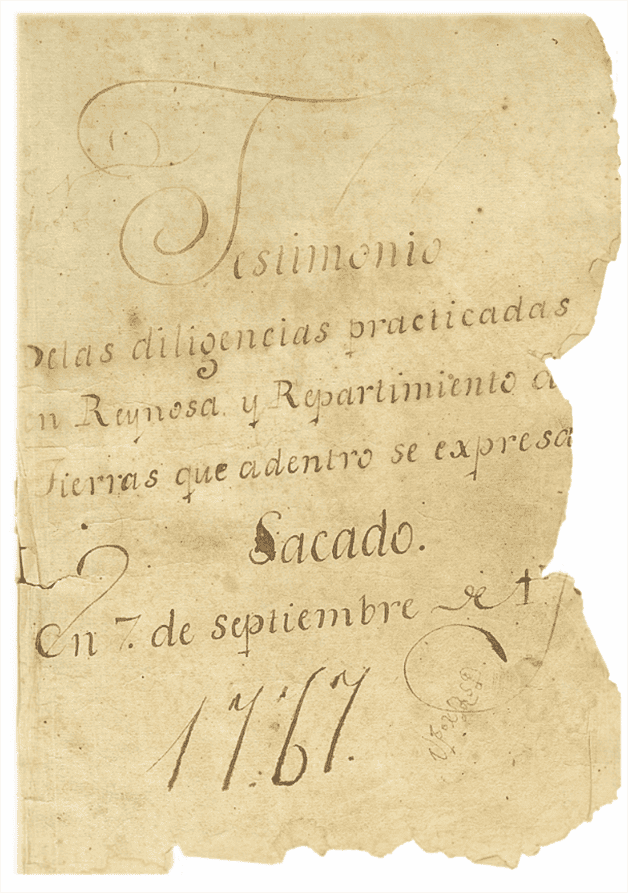 Testimonio
Delas diligencias practicadas
en Reynosa, y Repartimiento d
Tierras que adentro se expresa
Sacado.
En 7. de septiembre de 1
1767.